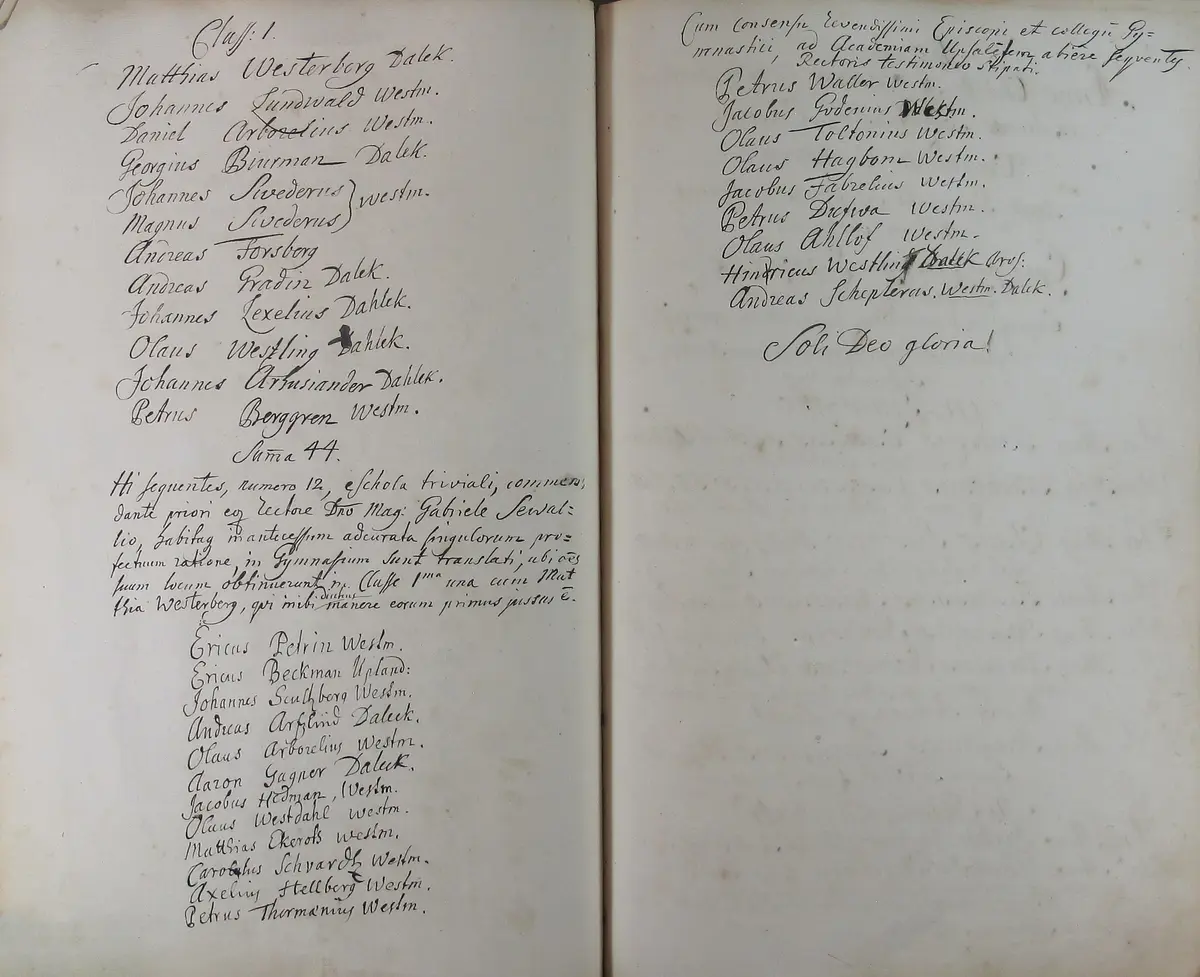 Class: 1.
Matthias Westerberg Dalek.
Johannes Lundwald Westm.
Daniel Arborelius Westm.
Georgius Biurman Dalek.
Johannes Swederus } westm.
Magnus Swederus
Andreas Forsberg
Andreas Gradin Dalek.
Johannes Lexelius Dahlek.
Olaus Westling Dahlek.
Johannes Arhusiander Dahlek.
Petrus Berggren Westm.
Sum̄a 44.
Hi sequentes, numero 12, e Schola triviali, commen-
dante priori Lectore Dn̄o Mag: Gabriele Sewal=
lio, habitaq in antecessum adcurata singulorum pro=
fectuum ratione, in Gymnasium sunt translati, ubi
suum locum obtinuerunt Classe 1ma una cum Mat
thia Westerberg, qvi inibi diutius manere eorum primus jussus ē.
Ericus Petrin Westm.
Ericus Beckman Upland:
Johannes Scultzberg Westm.
Andreas Arflind Daleck.
Olaus Arborelius Westm.
Aaron Gagner Daleck.
Jacobus Hedman, Westm.
Olaus Westdahl westm.
Matthias Ekeroth westm.
Carolus Schvardtz Westm.
Axelius Stellberg Westm.
Petrus Thormænius Westm.
Cum Consensu Revendissimi Episcopi et collegii Gy=
mnastici, ad Academiam Upsalēsem abiere seqventes
Rectoris testimonio stipati.
Petrus Waller Westm.
Jacobus Gudenius Westm.
Olaus Toltonius Westm.
Olaus Hagbom Westm.
Jacobus Fabrelius Westm.
Petrus Duswa Westm.
Olaus Ahllöf Westm.
Hindricus Westling Dalek Gros:
Andreas Schepterus. Westm. Dalek.
Soli Deo gloria!